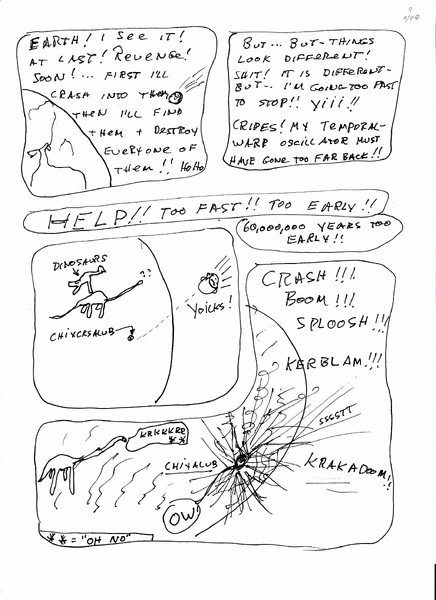 EARTH! I SEE IT!
AT LAST! REVENGE!
SOON!... FIRST I'LL
CRASH INTO THEM,
THEN I'LL FIND
THEM + DESTROY
EVERYONE OF
THEM!! HOHO
BUT... BUT-THINGS
LOOK DIFFERENT!
SHIT! IT IS DIFFERENT-
BUT-- I'M GOING TOO FAST
TO STOP!! YIII!!
CRIPES! MY TEMPORAL-
WARP OSCILLATOR MUST
HAVE GONE TOO FAR BACK!!
HELP!! TOO FAST!! TOO EARLY!!
60,000,000 YEARS TOO
EARLY!!
DINOSAURS
??
CHIXCSALUB
YOICKS!
CRASH!!!
BOOM!!!
SPLOOSH!!!
KERBLAM!!!
SSSSTT
KRAKADOOM!!
KRKKKRR
**
CHIXALUB
OW!
** = "OH NO"